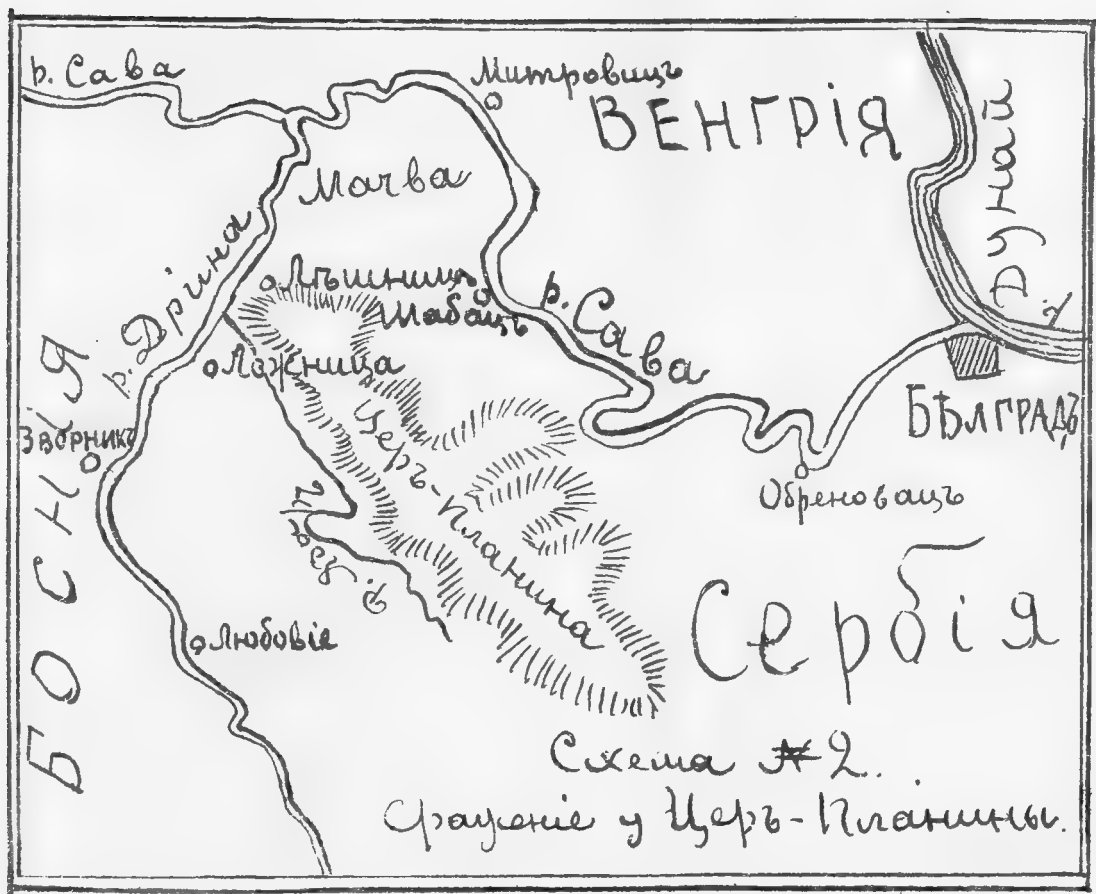 р. Сава
Митровицъ
ВЕНГРІЯ
Дунай
Мачва
р. Дрина
Лѣшница
Шабацъ
р. Сава
Ложница
БѢЛГРАДЪ
Зворникъ
Церъ-Планина
Обреновацъ
р. Ядаръ
Сербія
Любовія
БОСНІЯ
Схема № 2.
Сраженіе у Церъ-Планины.